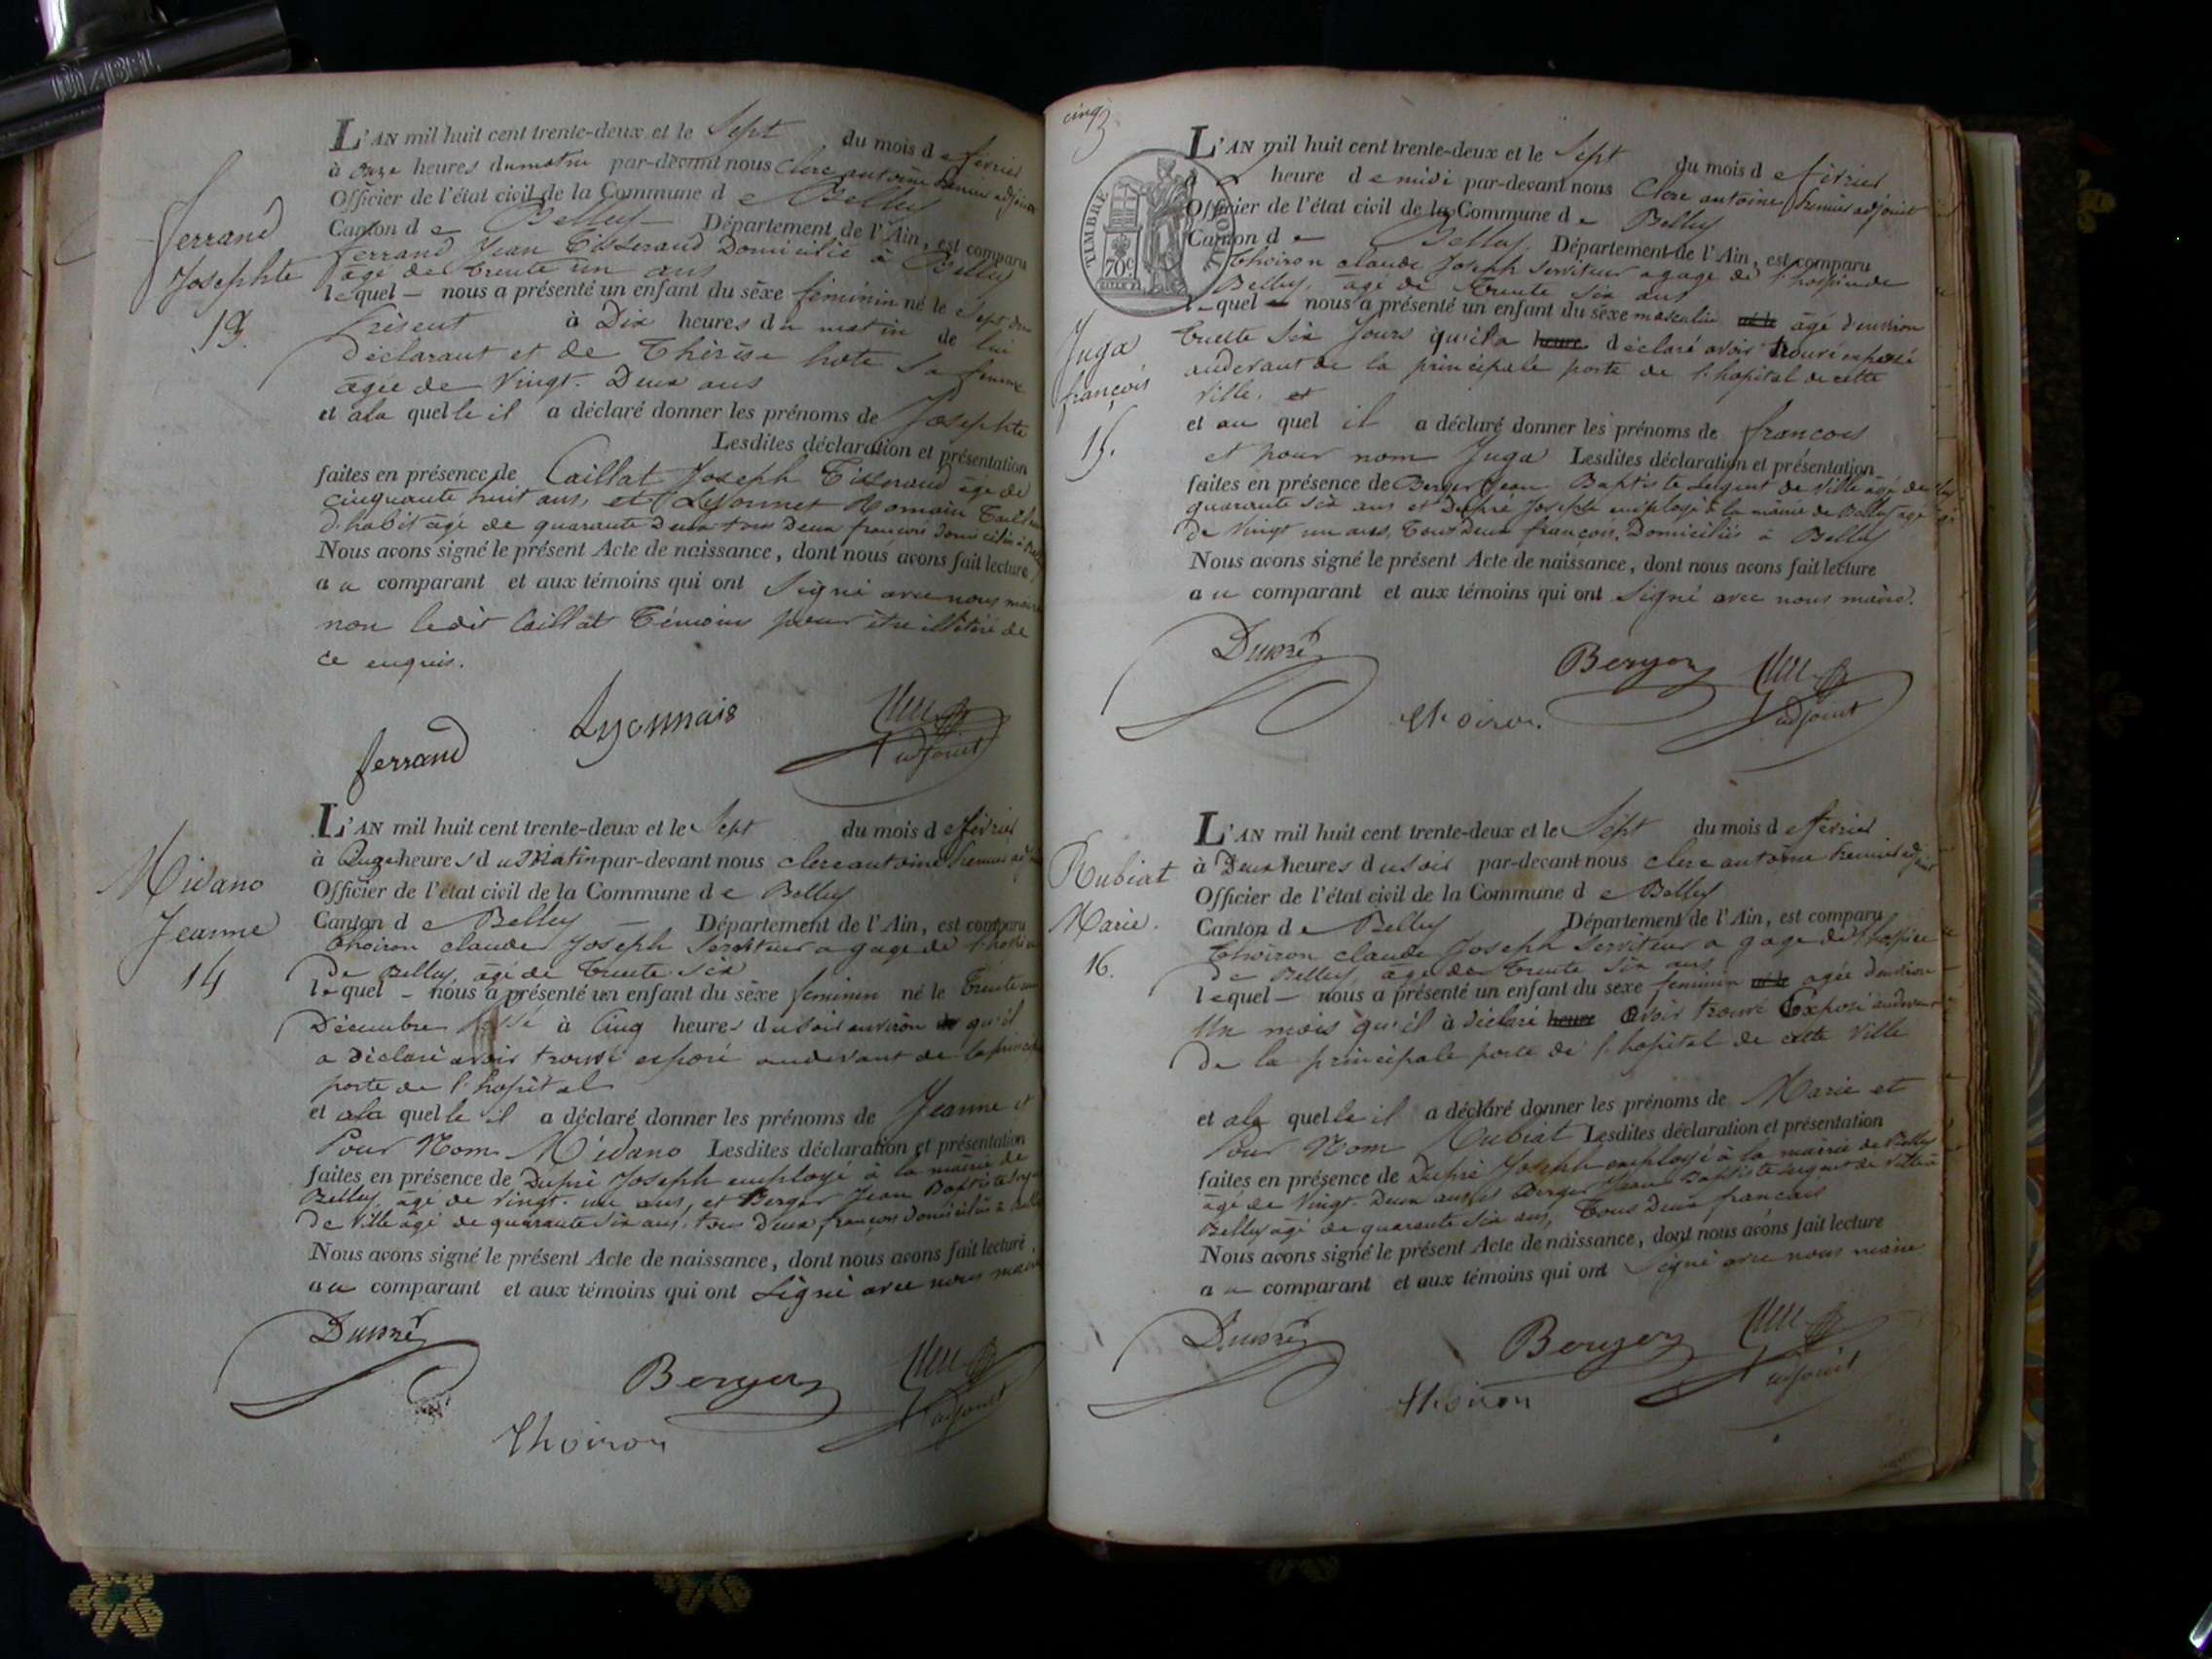 DIABEL
Ferrand
Josephte
13.
L'AN mil huit cent trente-deux et le Sept du mois de fevrier
à onze heures du matin par-devant nous Clerc antoine premier adjoint
Officier de l'état civil de la Commune de Belley
Canton de Belley Département de l'Ain, est comparu
ferrand Jean Tisserand Domicilié à Belley
âgé de trente un ans
lequel nous a présenté un enfant du sèxe féminin né le Sept du
Présent à Dix heures du matin de lui
déclarant et de Thérèse hote Sa femme
âgée de Vingt-Deux ans
et à la quelle il a déclaré donner les prénoms de Josephte
Lesdites déclaration et présentation
faites en présence de Caillat Joseph Tisserand âgé de
cinquante huit ans, et Lyonnet Romain
d'habit âgé de quarante Deux tous Deux françois Domiciliés à
Nous avons signé le présent Acte de naissance, dont nous avons fait lecture
au comparant et aux témoins qui ont Signé avec nous maire
non ledit Caillat Témoins pour être illitéré de
ce enquis.
ferrand
Lyonnais
adjoint
Midano
Jeanne
14
L'AN mil huit cent trente-deux et le Sept du mois de fevrier
à Onze heures du Matin par-devant nous clerc antoine Premier
Officier de l'état civil de la Commune de Belley
Canton de Belley Département de l'Ain, est comparu
Thoiron claude Joseph Serviteur a gage de
de Belley, âgé de Trente Six
lequel nous a présenté un enfant du sèxe feminin né le Trente un
Décembre passé à Cinq heures du Soir environ qu'il
a déclaré avoir trouvé exposé audevant de la
porte de l'hopital
et à la quelle il a déclaré donner les prénoms de Jeanne et
Pour Nom Midano Lesdites déclaration et présentation
faites en présence de Dupré Joseph employé à la mairie de
Belley, âgé de Vingt-un ans, et Berger Jean Baptiste
de Ville âgé de quarante Six ans, tous Deux françois Domiciliés à
Nous avons signé le présent Acte de naissance, dont nous avons fait lecture
au comparant et aux témoins qui ont Signé avec nous
Dupré
Berger
adjoint
Thoiron
cinq
TIMBRE ROYAL
70c
Juga
françois
15.
L'AN mil huit cent trente-deux et le Sept du mois de février
heure de midi par-devant nous Clerc antoine Premier adjoint
Officier de l'état civil de la Commune de Belley
Canton de Belley, Département de l'Ain, est comparu
Thoiron claude Joseph Serviteur a gage de l'hospice de
Belley, âgé de Trente Six ans
lequel nous a présenté un enfant du sèxe masculin né le âgé d'environ
trente Six Jours qu'il a heure déclaré avoir trouvé exposé
audevant de la principale porte de l'hopital de cette
Ville, et
et au quel il a déclaré donner les prénoms de françois
et pour nom Juga Lesdites déclaration et présentation
faites en présence de Berger Jean Baptiste Sergent de Ville âgé de
quarante six ans et Dupré Joseph employé à la mairie de Belley âgé
de Vingt un ans, Tous Deux françois, Domiciliés à Belley
Nous avons signé le présent Acte de naissance, dont nous avons fait lecture
au comparant et aux témoins qui ont Signé avec nous maire.
Dupré
Berger
Thoiron.
adjoint
Rubiat
Marie.
16.
L'AN mil huit cent trente-deux et le Sept du mois de fevrier
à Deux heures du soir par-devant nous clerc antoine Premier adjoint
Officier de l'état civil de la Commune de Belley
Canton de Belley Département de l'Ain, est comparu
Thoiron claude Joseph Serviteur a gage de l'hospice
de Belley, âgé de Trente Six ans
lequel nous a présenté un enfant du sexe feminin né le agée d'environ
Un mois qu'il à déclaré heure avoir trouvé Exposé audevant
de la principale porte de l'hopital de cette Ville
et à la quelle il a déclaré donner les prénoms de Marie et
Pour Nom Rubiat Lesdites déclaration et présentation
faites en présence de Dupré Joseph employé à la mairie de Belley
âgé de Vingt-Deux ans et Berger Jean Baptiste Sergent de Ville à
Belley âgé de quarante Six ans, Tous Deux francais
Nous avons signé le présent Acte de naissance, dont nous avons fait lecture
au comparant et aux témoins qui ont Signé avec nous maire
Dupré
Berger
Thoiron
adjoint